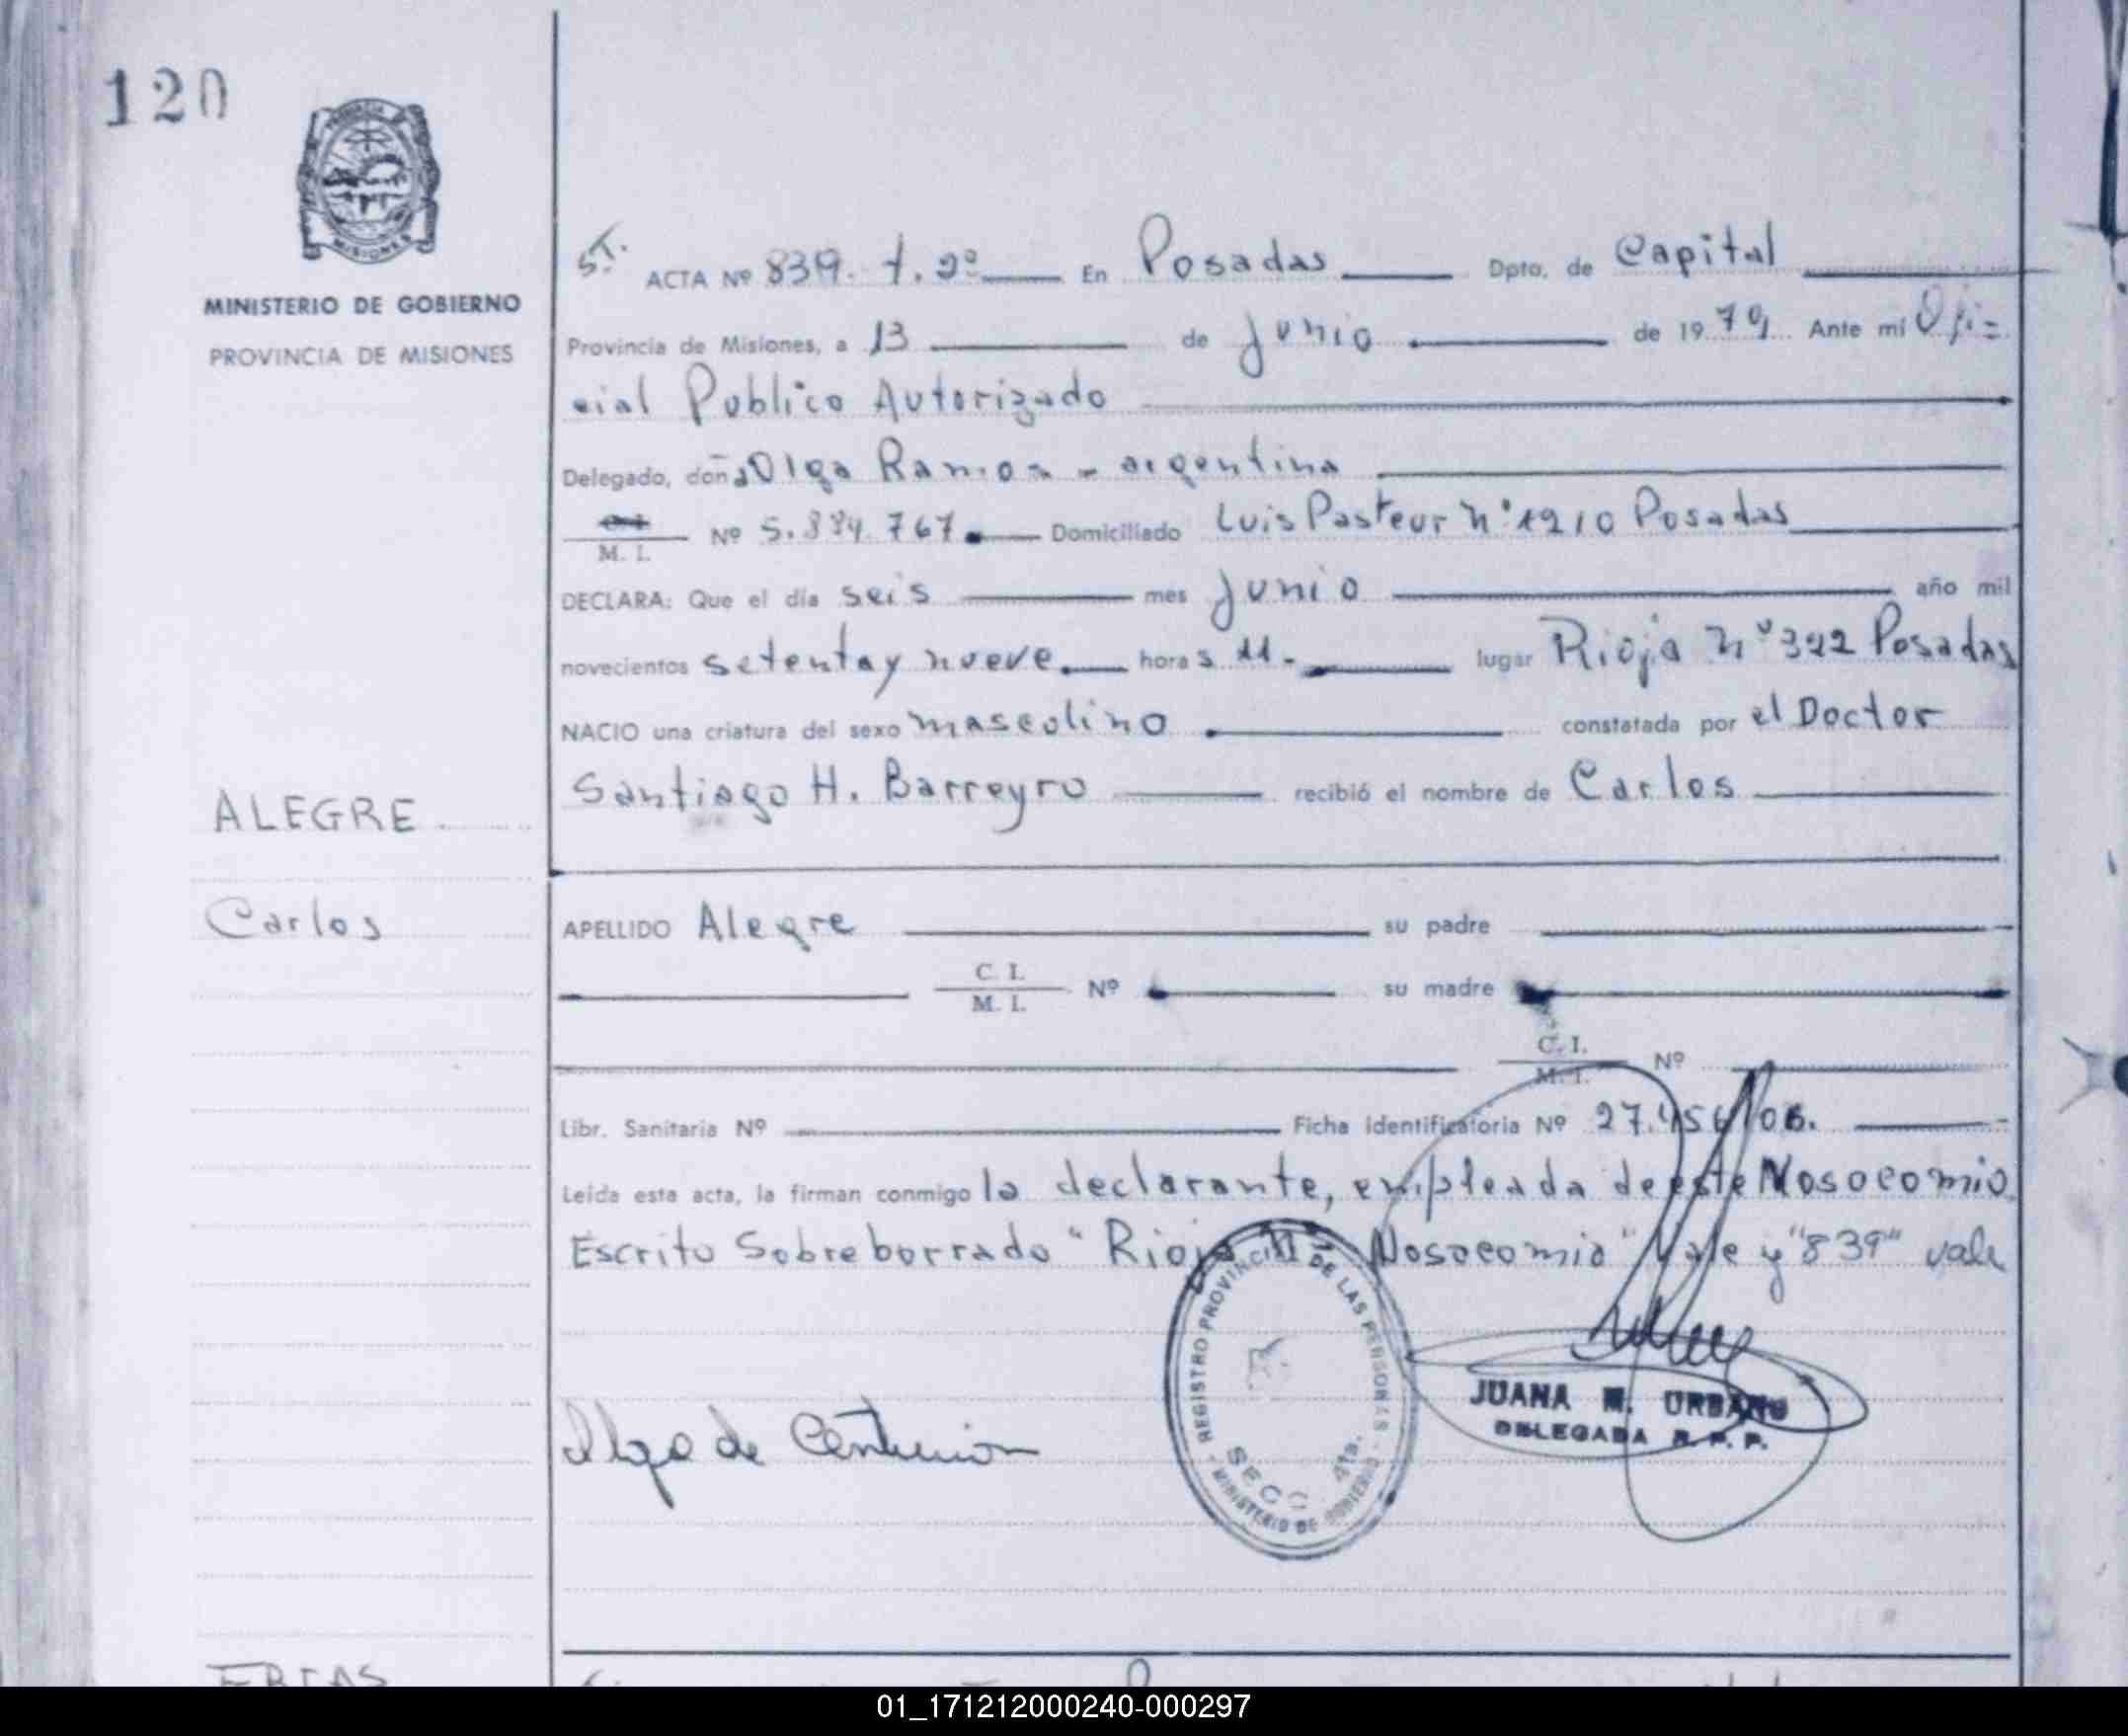 120
PROVINCIA
MISIONES
MINISTERIO DE GOBIERNO
PROVINCIA DE MISIONES
5T. ACTA Nº 839. t. 2º En Posadas Dpto. de Capital
Provincia de Misiones, a 13 de Junio de 1979 Ante mí Ofi=
cial Publico Autorizado
Delegado, doña Olga Ramos - argentina
M. I. Nº 5.884.767. Domiciliado Luis Pasteur Nº 1210 Posadas
DECLARA: Que el día seis mes Junio año mil
novecientos setenta y nueve. horas 11.- lugar Rioja Nº 322 Posadas
NACIO una criatura del sexo masculino constatada por el Doctor
Santiago H. Barreyro recibió el nombre de Carlos
ALEGRE
Carlos
APELLIDO Alegre su padre
C. I.
M. I. Nº su madre
C. I.
M. I. Nº
Libr. Sanitaria Nº Ficha identificatoria Nº 27.456.106.
Leída esta acta, la firman conmigo la declarante, empleada de este Nosocomio.
Escrito Sobre borrado "Rioja Nosocomio" Vale y "839" vale
REGISTRO PROVINCIAL DE LAS PERSONAS
SECC 4ta.
MINISTERIO DE GOBIERNO
Olga de Centurion
JUANA M. URBANO
DELEGADA R. P. P.
01_171212000240-000297